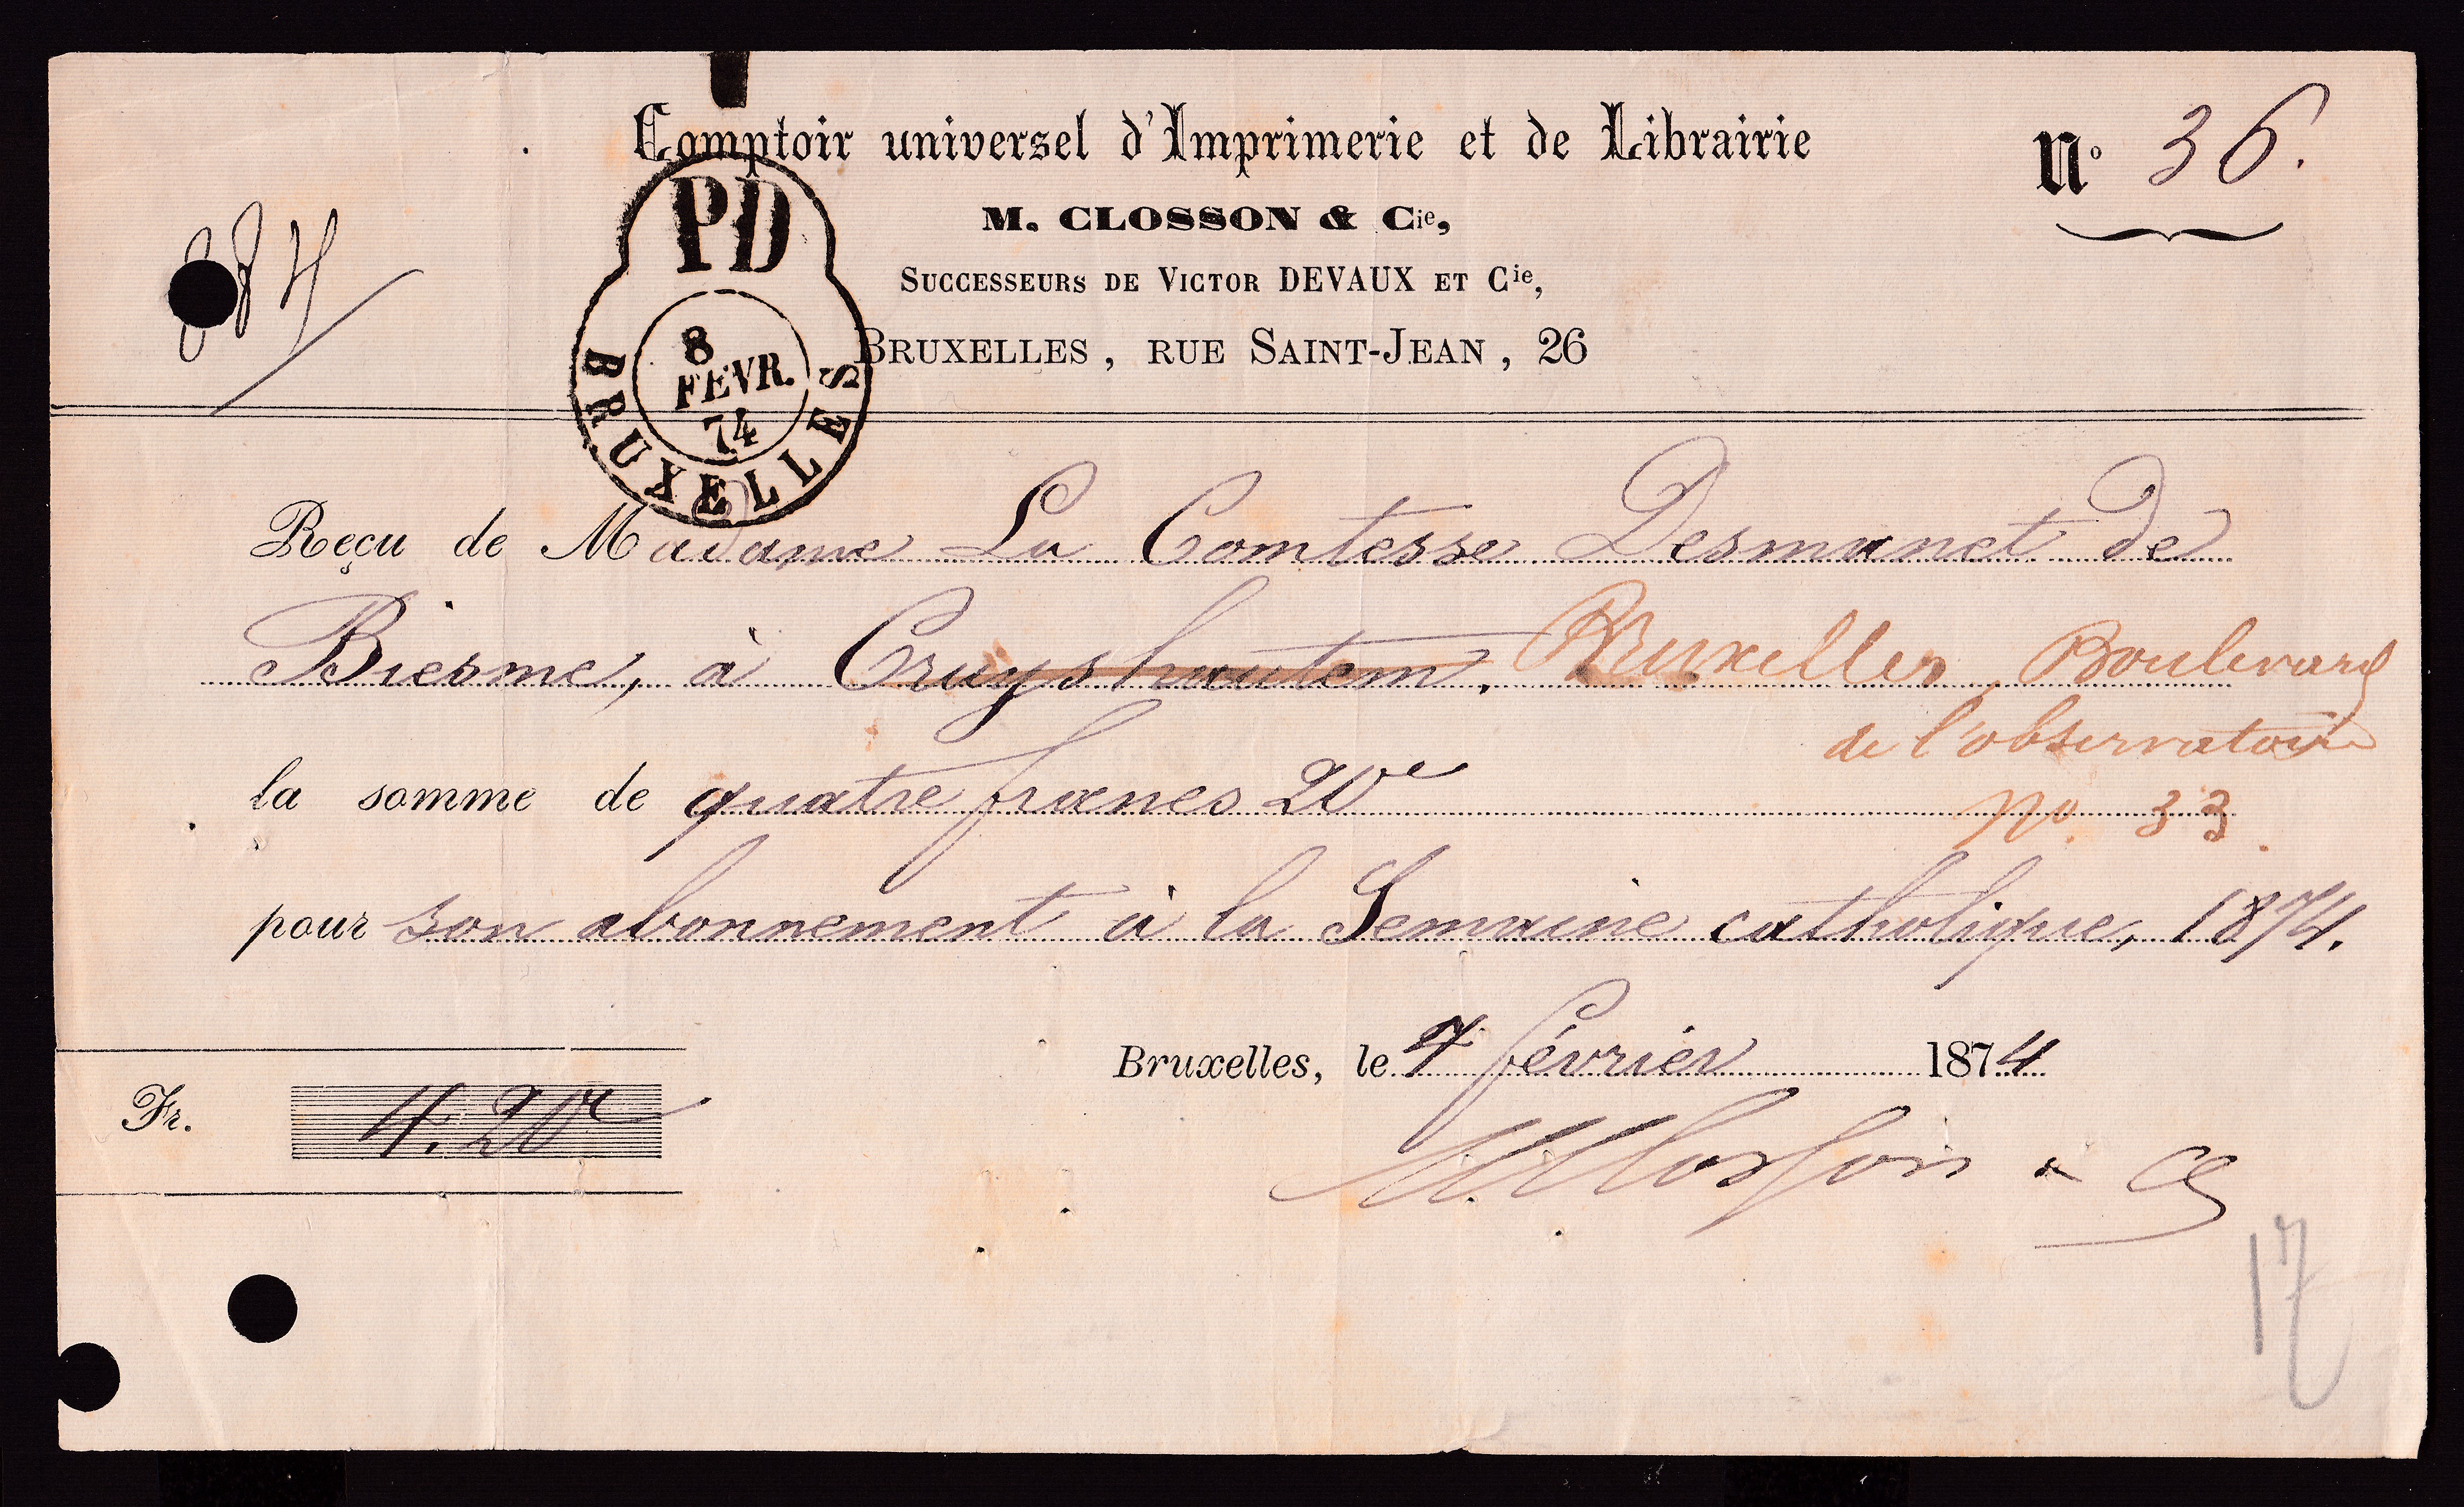 Comptoir universel d'Imprimerie et de Librairie
N° 36.
M. CLOSSON & Cie,
SUCCESSEURS DE VICTOR DEVAUX ET Cie,
BRUXELLES, RUE SAINT-JEAN, 26
PD
8
FEVR.
74
BRUXELLES
Reçu de Madame La Comtesse Desmanet de
Biesme, à Cruyshautem. Bruxelles, Boulevard
de l'observatoire
la somme de quatre francs 20 ce
no. 33.
pour son abonnement à la Semaine catholique, 1874.
Bruxelles, le 7 février 1874
Fr. 4.20 ce
M Closson & Cie
17